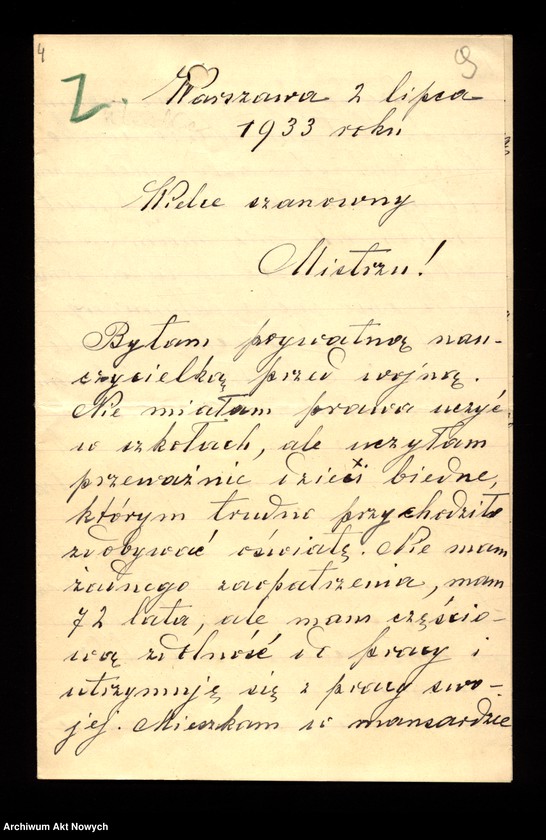 4
9
Z.
Warszawa 2 lipca
1933 roku
Wielce szanowny
Mistrzu!
Byłam prywatną nau-
czycielką przed wojną.
Nie miałam prawa uczyć
w szkołach, ale uczyłam
przeważnie dzieci biedne,
którym trudno przychodziło
zdobywać oświatę. Nie mam
żadnego zaopatrzenia, mam
72 lata, ale mam częścio-
wą zdolność do pracy i
utrzymuję się z pracy swo-
jej. Mieszkam w mansardzie
Archiwum Akt Nowych